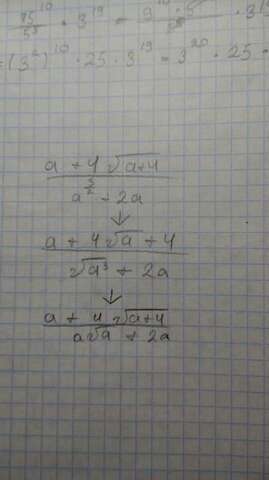 75¹⁰ / 5⁹ · 3¹⁹ =
= (3²)¹⁰ · 25 · 3¹⁹ = 3²⁰ · 25 =
a + 4√(a+4)
a^(3/2) + 2a
↓
a + 4√a + 4
√a³ + 2a
↓
a + 4√(a+4)
a√a + 2a